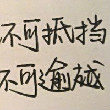 不可抵挡
不可逾越